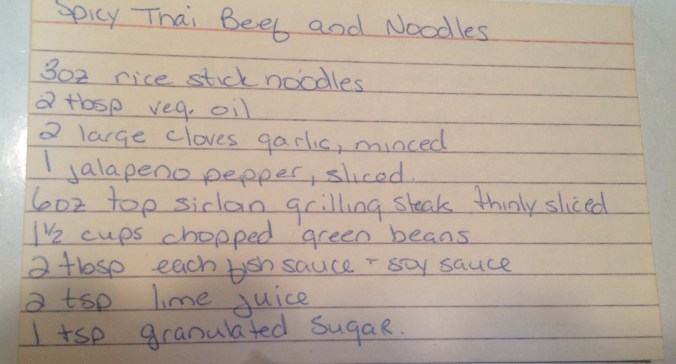 Spicy Thai Beef and Noodles
3oz rice stick noodles
2 tbsp veg. oil
2 large cloves garlic, minced
1 jalapeno pepper, sliced.
6oz top sirloan grilling steak thinly sliced
1 1/2 cups chopped green beans
2 tbsp each fish sauce + soy sauce
2 tsp lime juice
1 tsp granulated sugar.